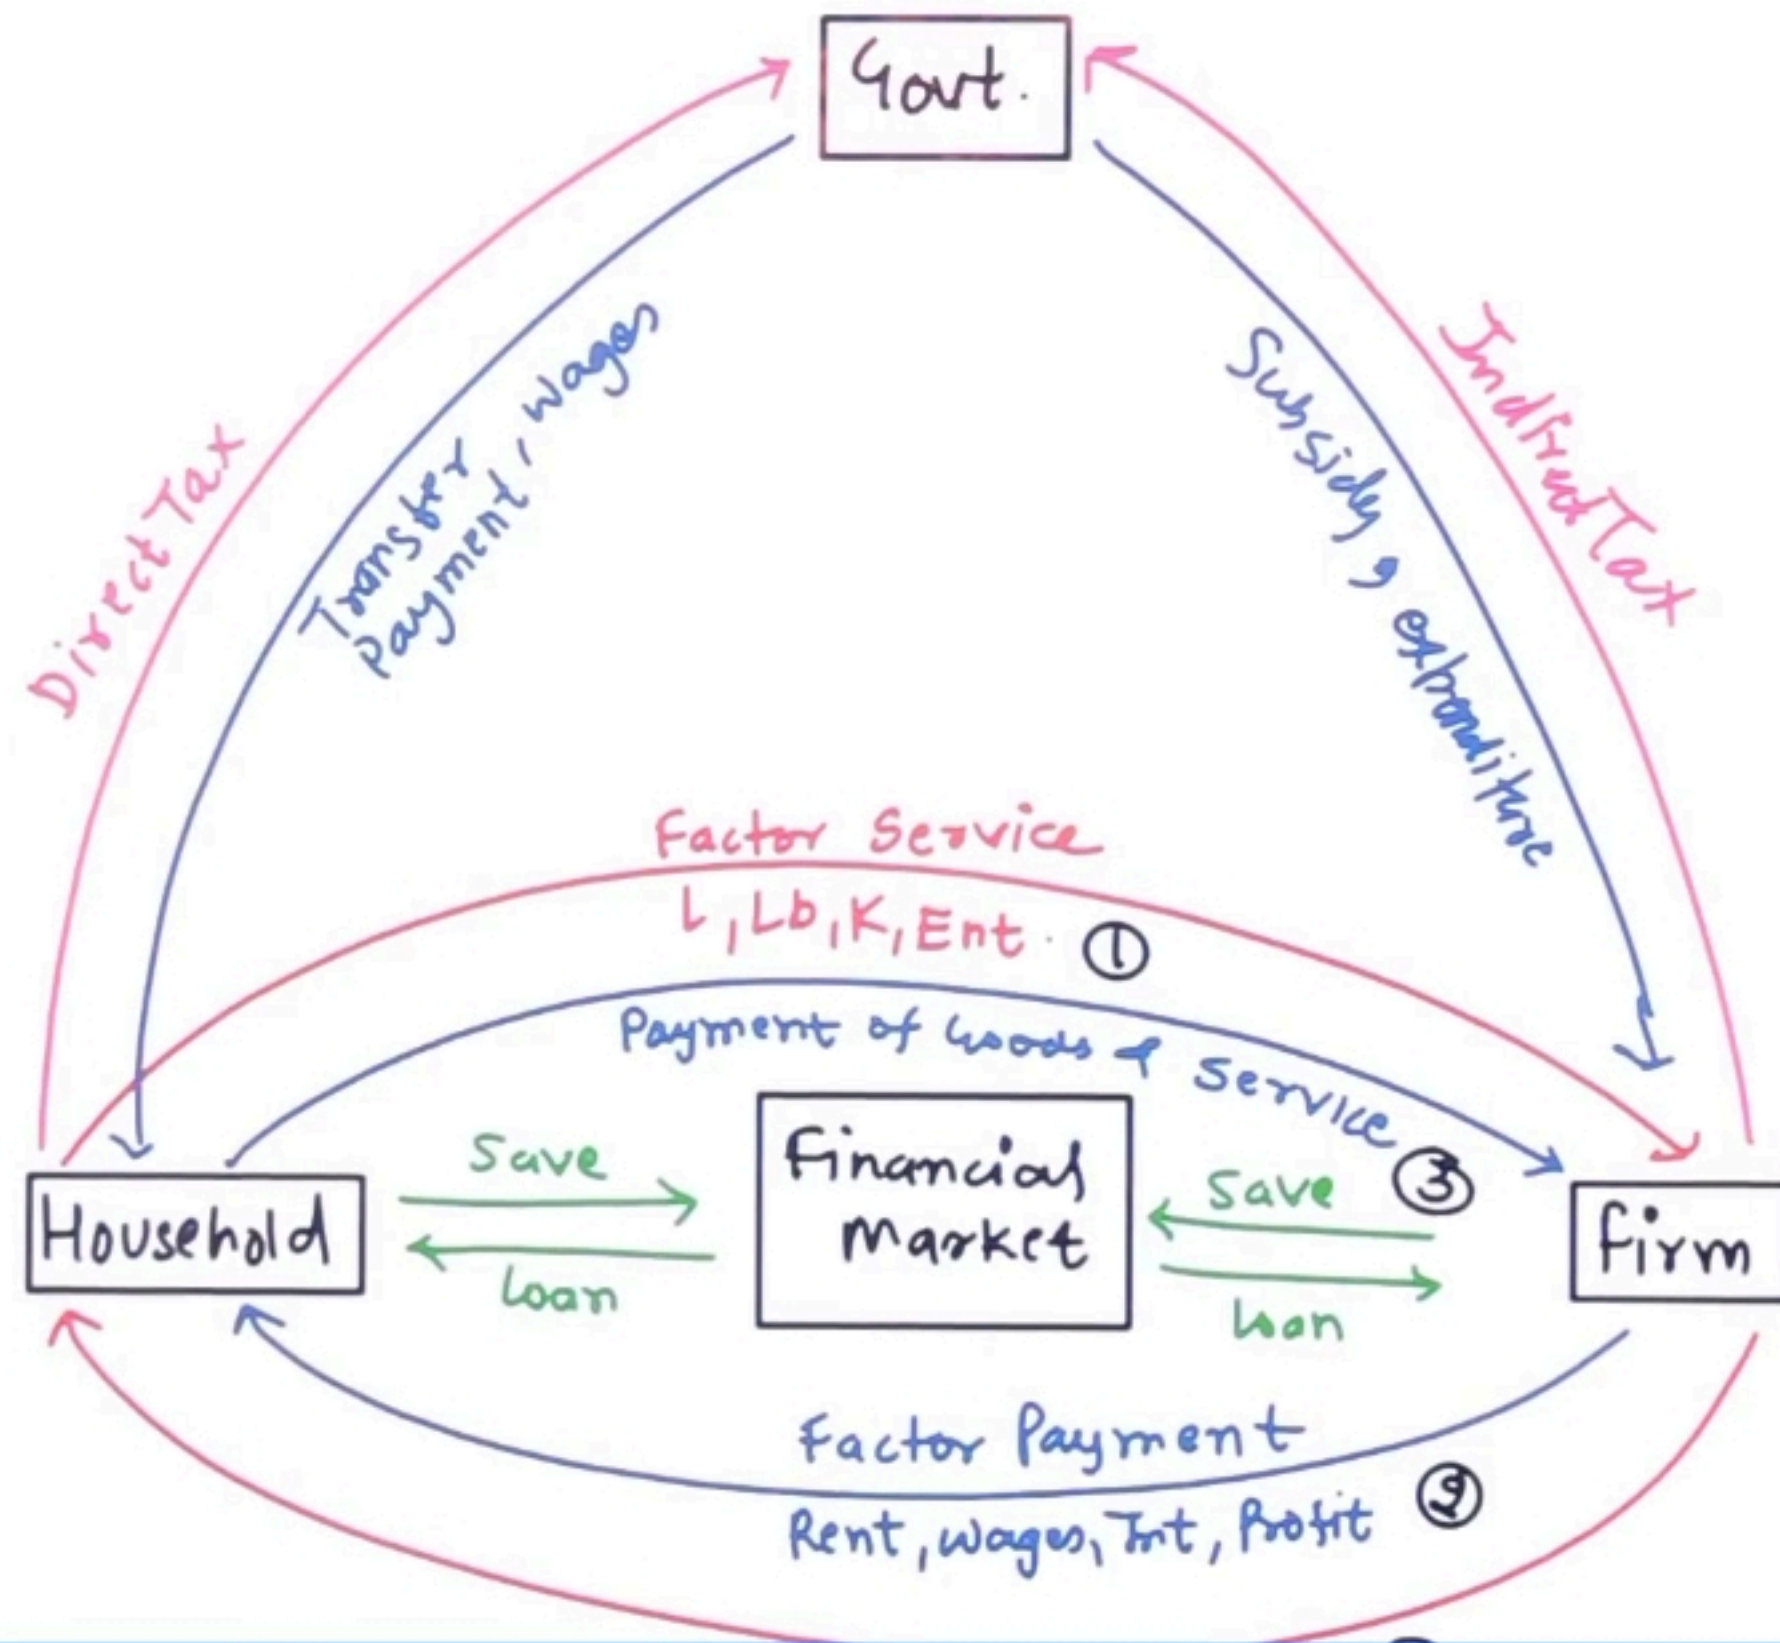 Govt.
Direct Tax
Transfer
Payment, wages
Subsidy, expenditure
Indirect Tax
Factor Service
L, Lb, K, Ent.
①
Payment of Goods & Service
③
Save
Loan
Financial
Market
Save
Loan
Household
firm
Factor Payment
Rent, wages, Int, Profit
②